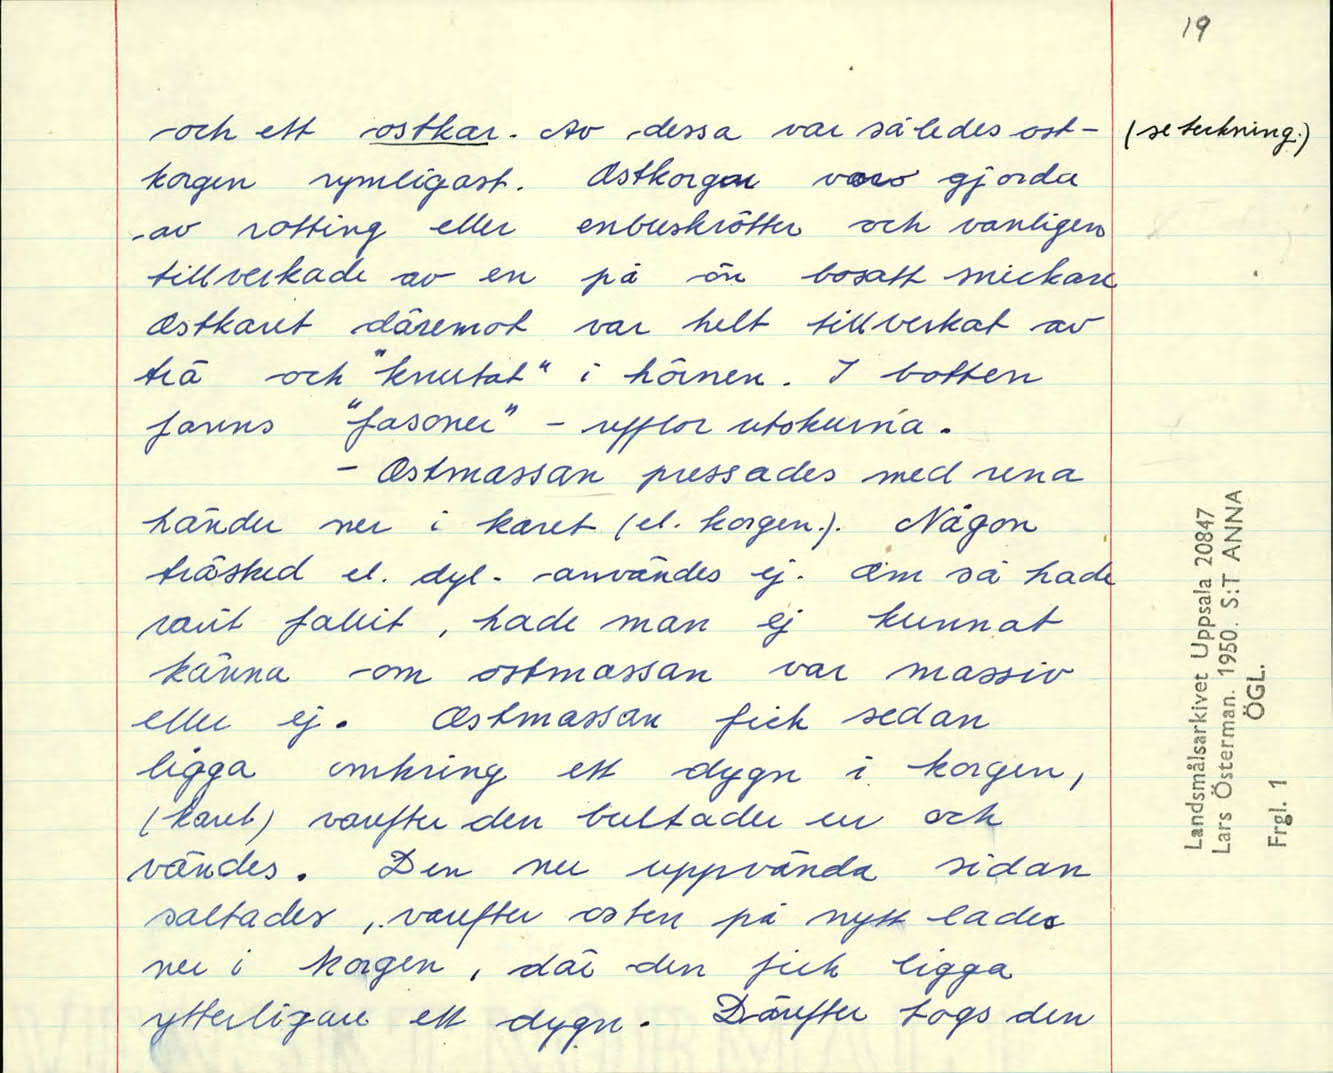 19
och ett ostkar. Av dessa var således ost- (se teckning.)
korgen rymligast. Ostkorgar voro gjorda
av rotting eller enbuskrötter och vanligen
tillverkade av en på ön bosatt snickare
Ostkaret däremot var helt tillverkat av
trä och "knutat" i hörnen. I botten
fanns "fasoner" - refflor utskurna.
- Ostmassan pressades med rena
händer ner i karet (el. korgen.). Någon
träsked el. dyl. användes ej. Om så hade
varit fallit, hade man ej kunnat
känna om ostmassan var massiv
eller ej. Ostmassan fick sedan
ligga omkring ett dygn i korgen,
(karet) varefter den bultades ur och
vändes. Den nu uppvända sidan
saltades, varefter osten på nytt lades
ner i korgen, där den fick ligga
ytterligare ett dygn. Därefter togs den
Landsmålsarkivet Uppsala 20847
Lars Österman. 1950. S:T ANNA
ÖGL.
Frgl. 1